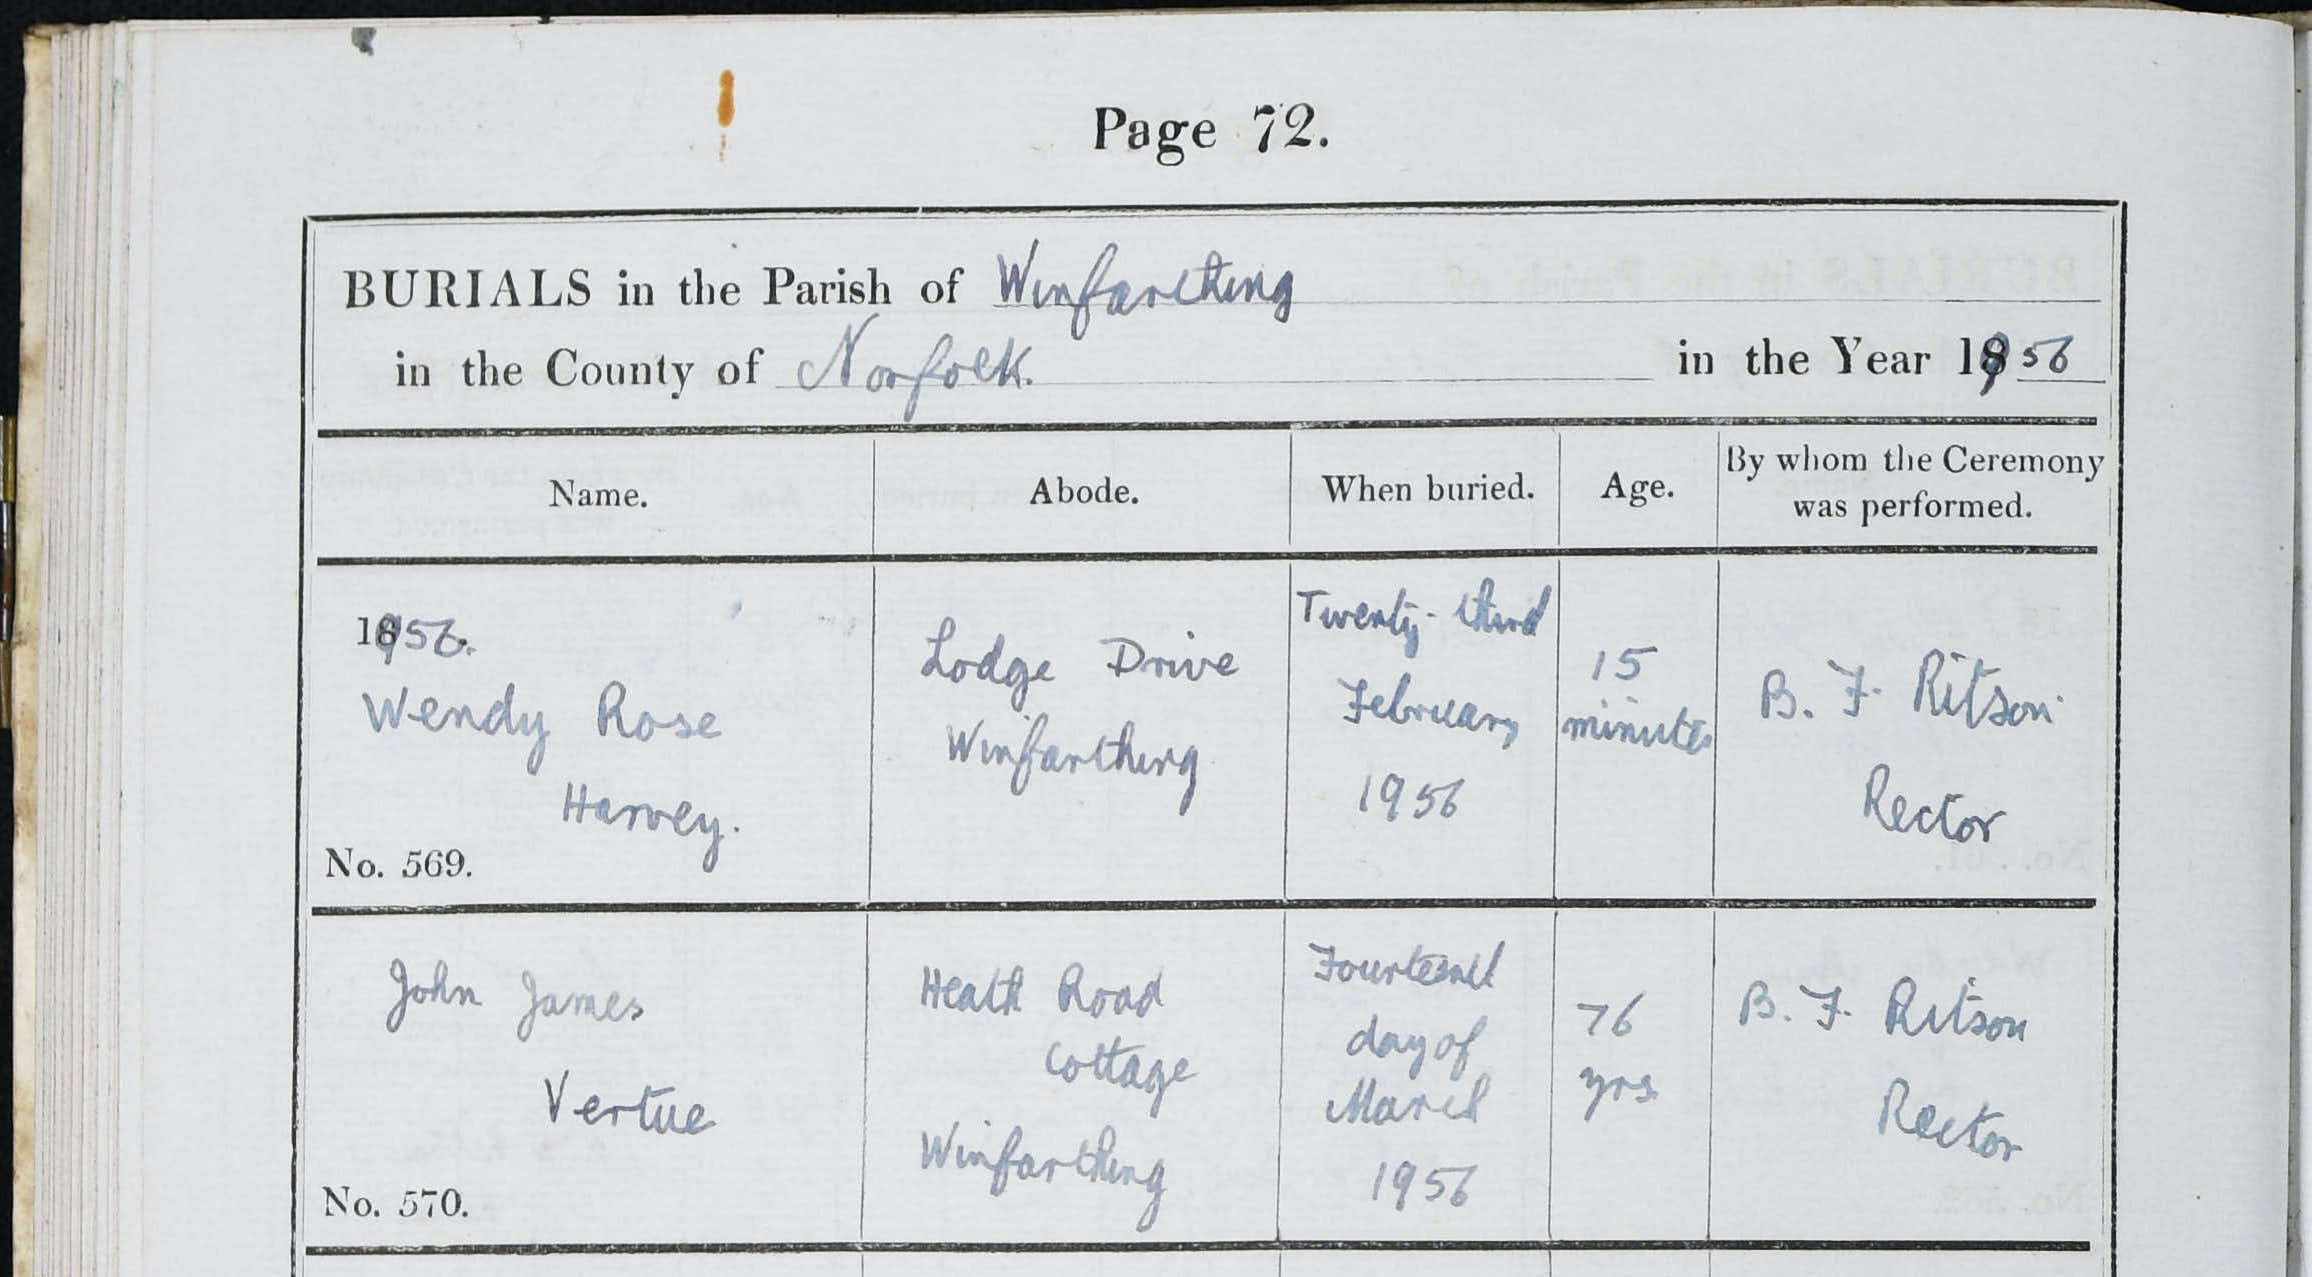 Page 72.
BURIALS in the Parish of Winfarthing
in the County of Norfolk. in the Year 1956
Name. Abode. When buried. Age. By whom the Ceremony was performed.
1956.
Wendy Rose
Harvey.
No. 569.
Lodge Drive
Winfarthing
Twenty-third
February
1956
15
minutes
B. F. Ritson
Rector
John James
Vertue
No. 570.
Heath Road
Cottage
Winfarthing
Fourteenth
day of
March
1956
76
yrs.
B. F. Ritson
Rector